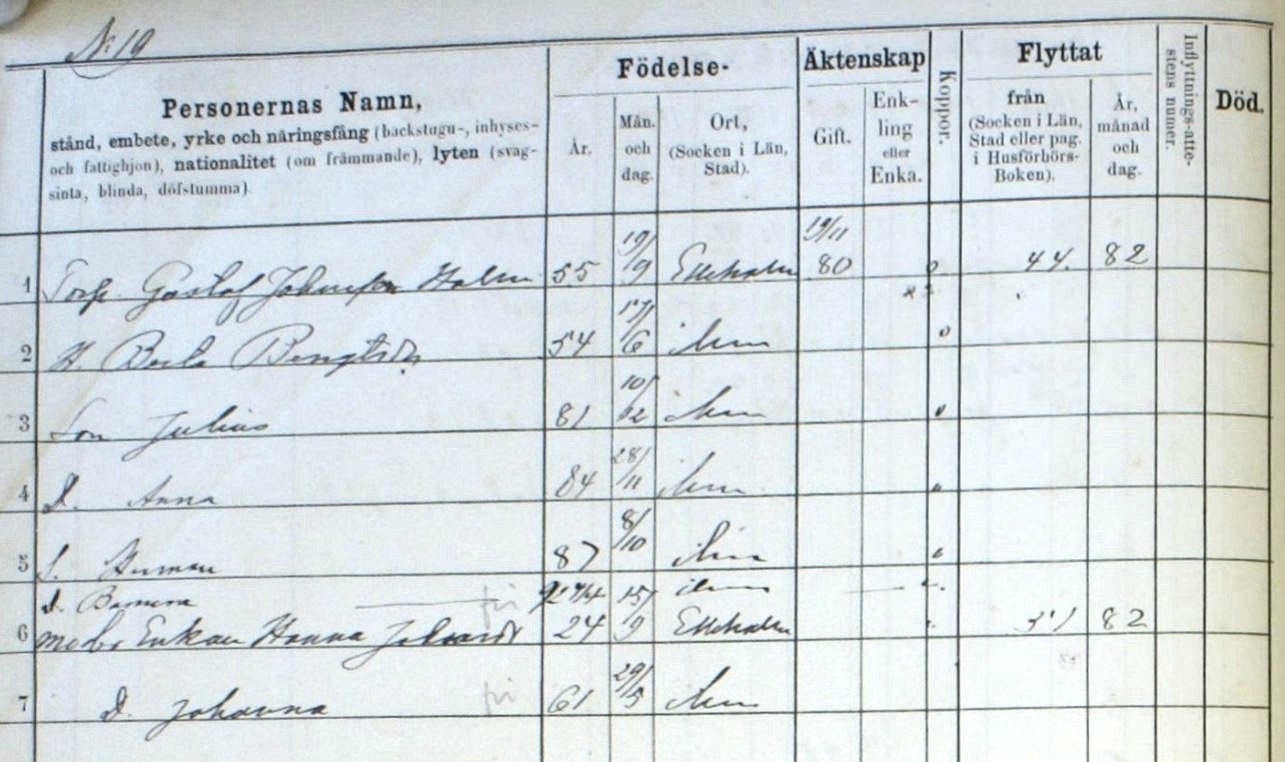 N: 19
Personernas Namn,
stånd, embete, yrke och näringsfång (backstugu-, inhyses-
och fattighjon), nationalitet (om främmande), lyten (svag-
sinta, blinda, döfstumma).
Födelse-
År.
Mån.
och
dag.
Ort,
(Socken i Län,
Stad).
Äktenskap
Gift.
Enk-
ling
eller
Enka.
Koppor.
Flyttat
från
(Socken i Län,
Stad eller pag.
i Husförhörs-
Boken).
År,
månad
och
dag.
Inflyttnings-atte-
stens numer.
Död.
1 Torp. Gustaf Johnsson Holm 55 19/9 Elleholm 19/11 80 0 44. 82
2 H. Berta Bengtsdr 54 17/6 ibm 0
3 Son Julius 81 10/12 ibm
4 D. Anna 84 28/11 ibm
5 S. Herman 87 8/10 ibm
D. ibm
6 Enkan Hanna 24 15/9 Elleholm 82
7 D. Johanna 61 29/5 ibm